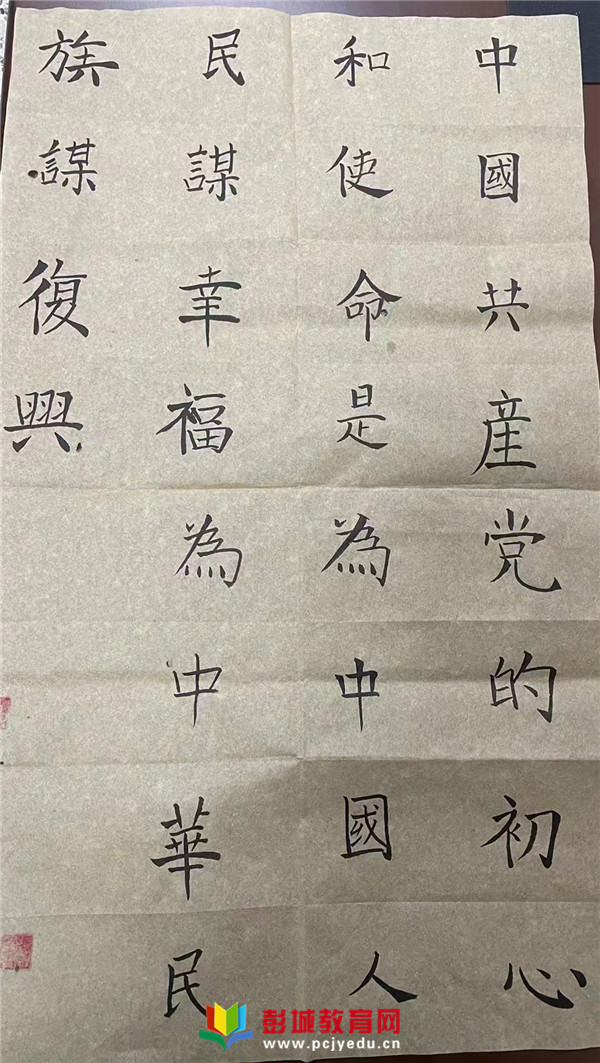 中國共産党的初心
和使命是為中國人
民謀幸福為中華民
族謀復興
彭城教育网
www.pcjyedu.cn